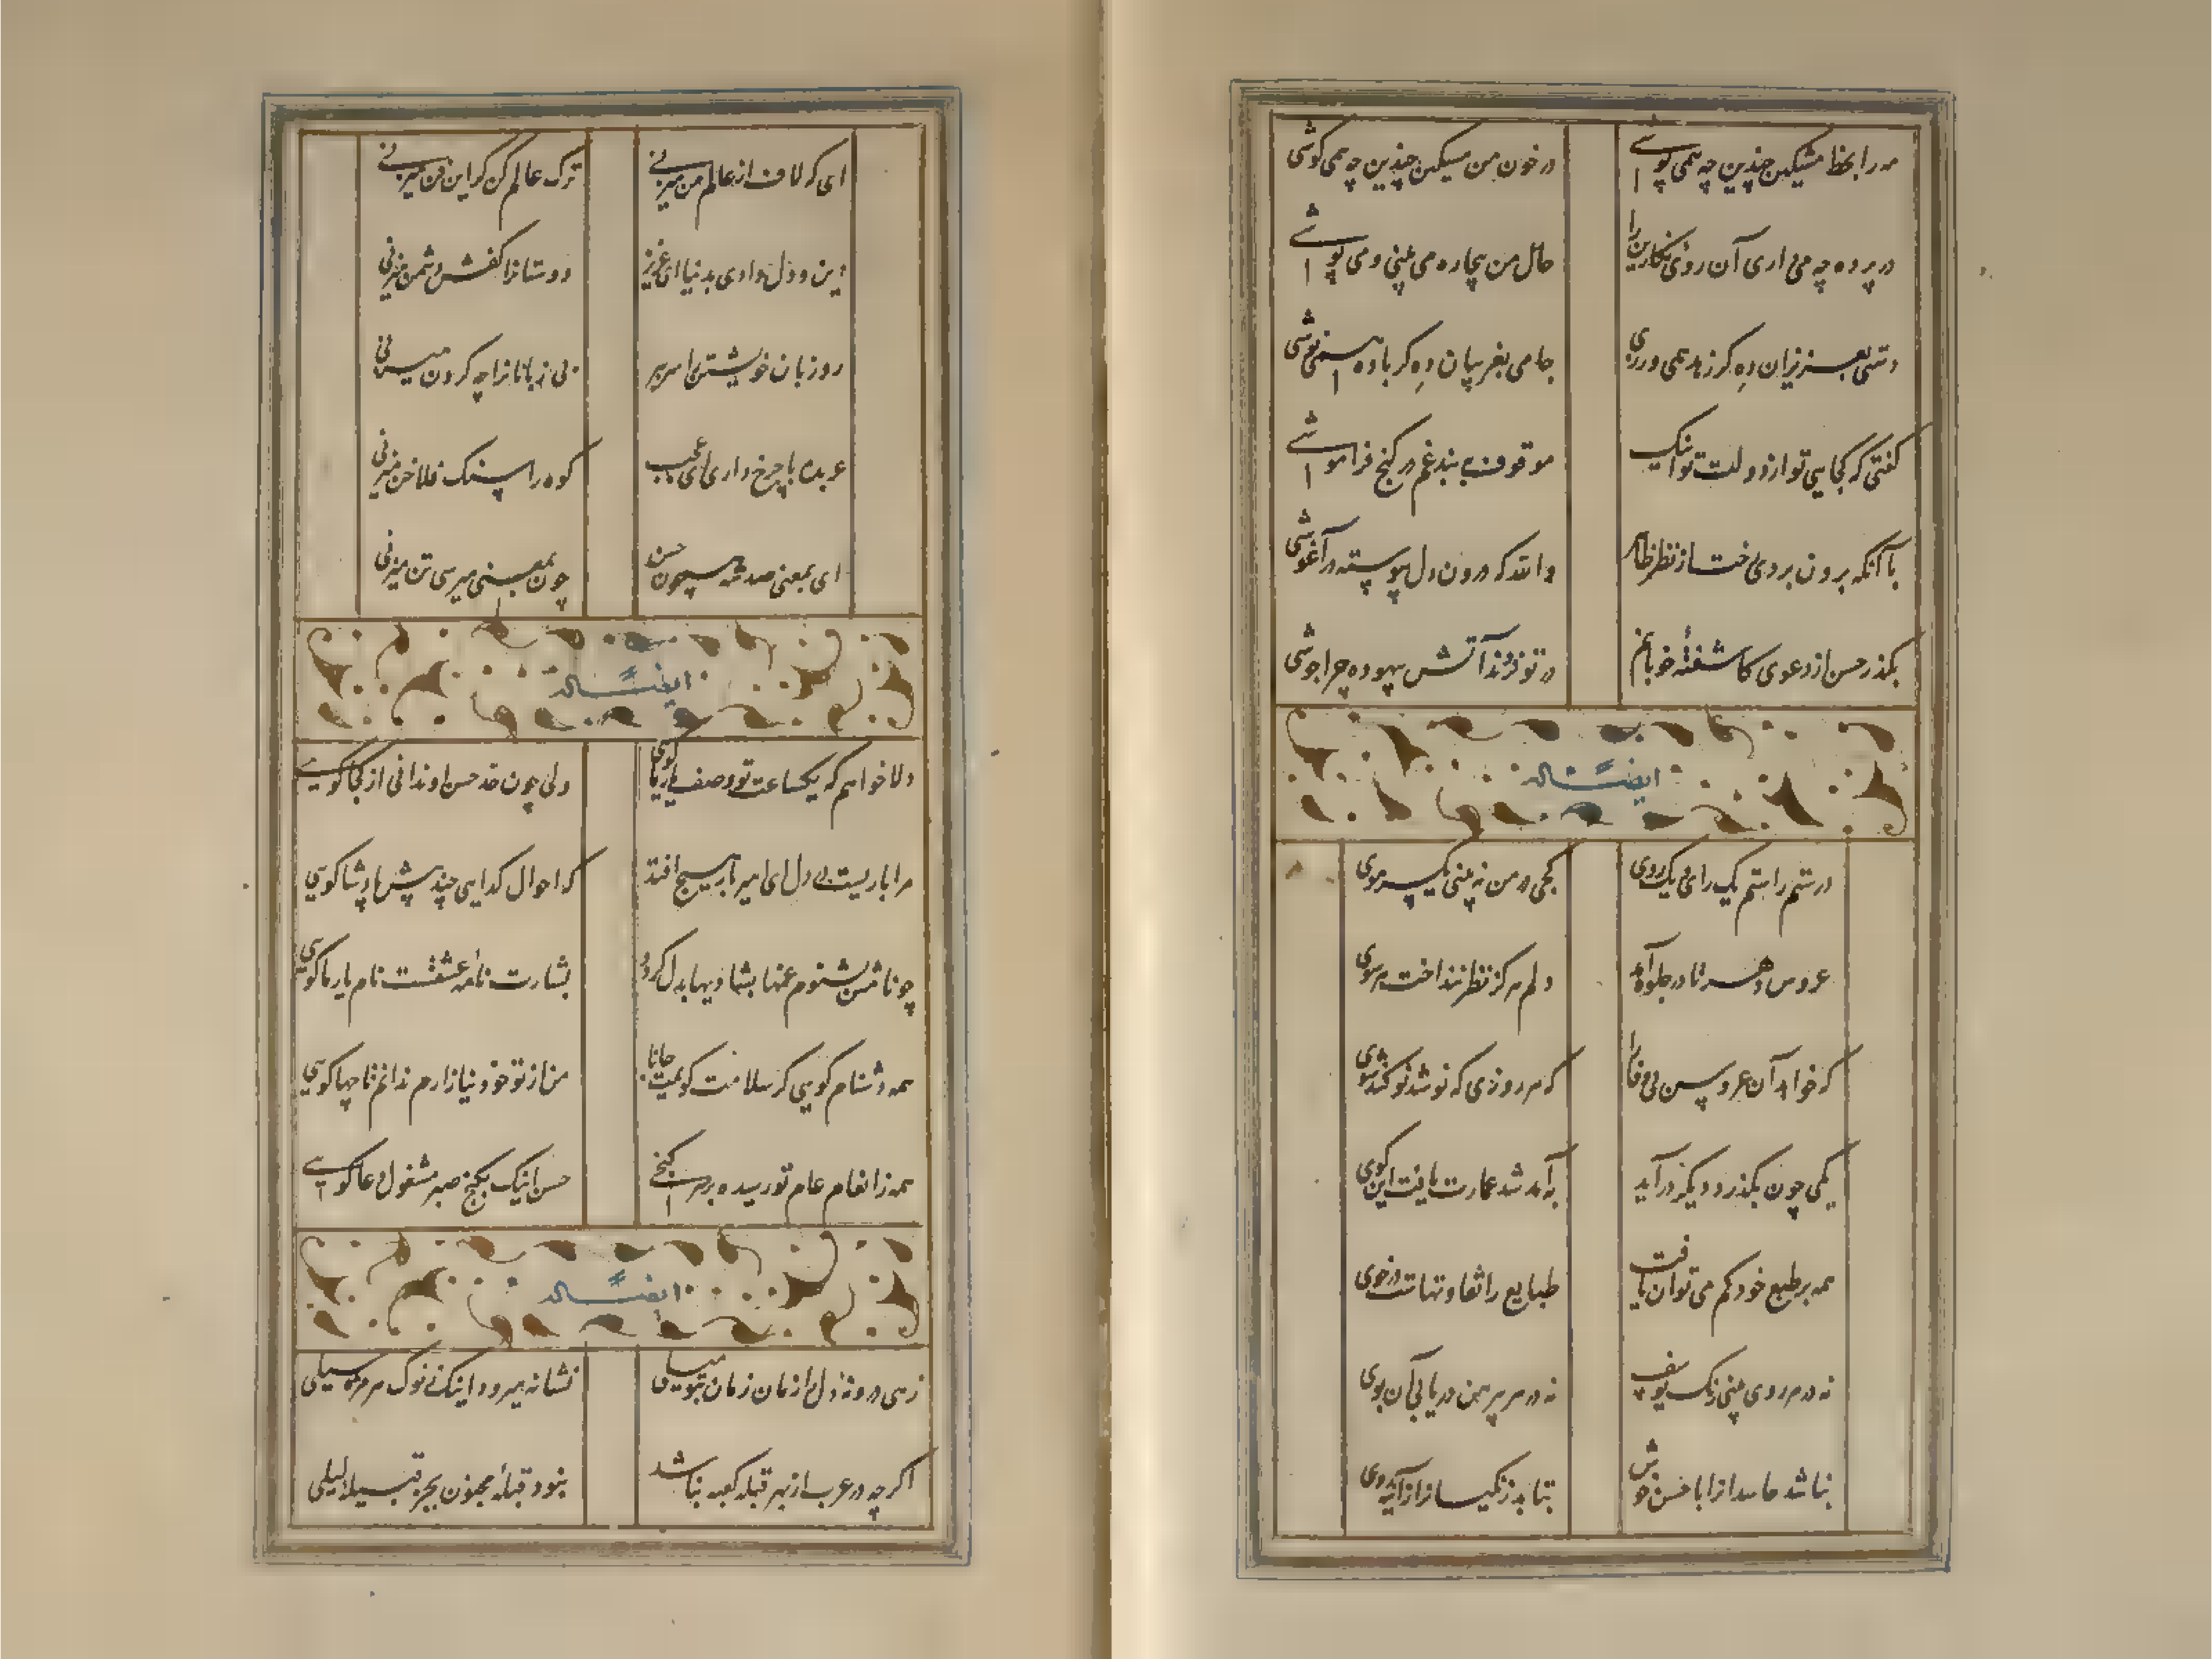 مه را بخط مشکین چندین چه همی پوشی
در خون من مسکین چندین چه همی کوشی
در پرده چه می داری آن روی نکارین را
حال من بیچاره می بینی و می پوشی
دستی بعزیزان ده کر زهد همی ورزی
جامی بغریبان ده کر باده همی نوشی
کفتی که کجایی تو از دولت تو اینک
موقوف بیند غم در کنج فراموشی
با آنکه برون بردی رخت از نظر ظاهر
والله که درون دل پیوسته در آغوشی
بکذر حسن از دعوی کاشفتهٔ خوبانم
در تو نزدند آتش بیهوده چرا جوشی
ایضاً له
درستم راستم یک رای و یک روی
کجی در من نه بینی یک سر موی
عروس دهر تا در جلوه آمد
دلم هرکز نظر ننداخت هر سوی
که خواهد آن عروس بی وفا را
که هر روزی که نو شد نو کند شوی
یکی چون بکذرد دیکر درآید
به آمد شد عمارت یافت این کوی
همه بر طبع خود کم می توان یافت
طبایع را تفاوتهاست در خوی
نه در هر روی بینی رنک یوسف
نه در هر پیرهن دریابی آن بوی
نباشد حاسدانرا با حسن خوش
نتابد زنکیانرا ز آینه روی
ای که لاف از عالم من میزنی
ترک عالم کن کر این فن میزنی
دین و دل دادی بدنیا ای عزیز
دوستانرا کفش دشمن میزنی
رو زبان خویشتن را سر ببر
بی زبانانرا چه کردن میزنی
عربده با چرخ داری ای عجب
کوه را سنک فلاخن میزنی
ای بمعنی صد شده همچون حسن
چون بمعنی میرسی تن میزنی
ایضاً له
دلا خواهم که یکساعت تو وصف یار ما کویی
ولی چون حد حسن او ندانی از کجا کویی
مرا باریست بر دل ای امیر بار هیچ افتد
که احوال کدایی چند پیش پادشا کویی
چو نامش بشنوم غمها بشادیها بدل کردد
بشارت نامه عشقست نام یار ما کویی
همه دشنام کویی کر سلامت کویمت جانا
من از تو خود نیازارم ندانم تا چها کویی
همه ز انعام عام تو رسیده بر هر کنجی
حسن اینک بکنج صبر مشغول دعا کویی
ایضاً له
زهی درونهٔ دل از زمان زمان بتو میلی
نشانه میرود اینک ز نوک هر مژه سیلی
اکر چه در عرب از بهر قبله کعبه بنا شد
نبود قبلهٔ مجنون بجز قبیلهٔ لیلی